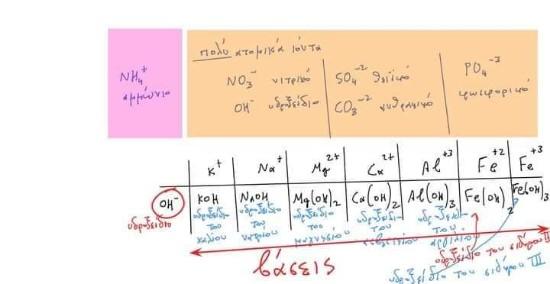 πολυατομικά ιόντα
NH₄⁺
αμμώνιο
NO₃⁻ νιτρικό
OH⁻ υδροξείδιο
SO₄⁻² θειικό
CO₃⁻² ανθρακικό
PO₄⁻³
φωσφορικό
K⁺ Na⁺ Mg²⁺ Ca²⁺ Al⁺³ Fe⁺² Fe⁺³
OH⁻ KOH NaOH Mg(OH)₂ Ca(OH)₂ Al(OH)₃ Fe(OH)₂ Fe(OH)₃
υδροξείδιο
υδροξείδιο του καλίου
υδροξείδιο του νατρίου
υδροξείδιο του μαγνησίου
υδροξείδιο του ασβεστίου
υδροξείδιο του αργιλίου
υδροξείδιο του σιδήρου II
υδροξείδιο του σιδήρου III
βάσεις